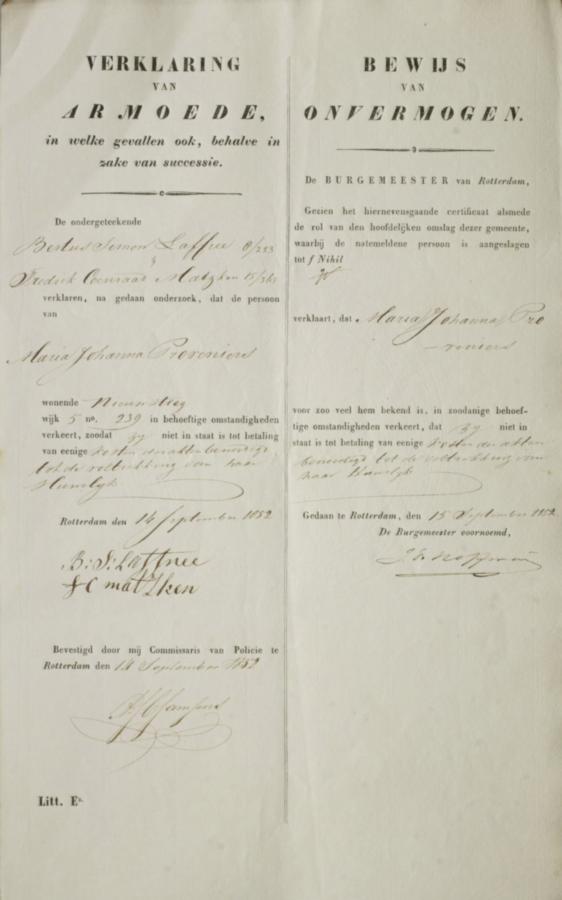 VERKLARING
VAN
ARMOEDE,
in welke gevallen ook, behalve in
zake van successie.
De ondergeteekende
Bertus Simon Laffree
&
Fredrik Coenraad Matzken
verklaren, na gedaan onderzoek, dat de persoon
van
Maria Johanna Proveniers
wonende Nieuwsteeg
wijk 5 no. 239 in behoeftige omstandigheden
verkeert, zoodat zy niet in staat is tot betaling
van eenige kosten der acten benoodigd
tot de voltrekking van haar
Huwelyk
Rotterdam den 14 September 1852
B: S: Laffree
F C matzken
Bevestigd door mij Commissaris van Policie te
Rotterdam den 14 September 1852
Litt. Es.
BEWIJS
VAN
ONVERMOGEN.
De BURGEMEESTER van Rotterdam,
Gezien het hiernevensgaande certificaat alsmede
de rol van den hoofdelijken omslag dezer gemeente,
waarbij de natemeldene persoon is aangeslagen
tot f Nihil
verklaart, dat Maria Johanna Pro
veniers
voor zoo veel hem bekend is, in zoodanige behoef-
tige omstandigheden verkeert, dat zy niet in
staat is tot betaling van eenige kosten der acten
benoodigd tot de voltrekking van
haar Huwelyk
Gedaan te Rotterdam, den 15 September 1852
De Burgemeester voornoemd,